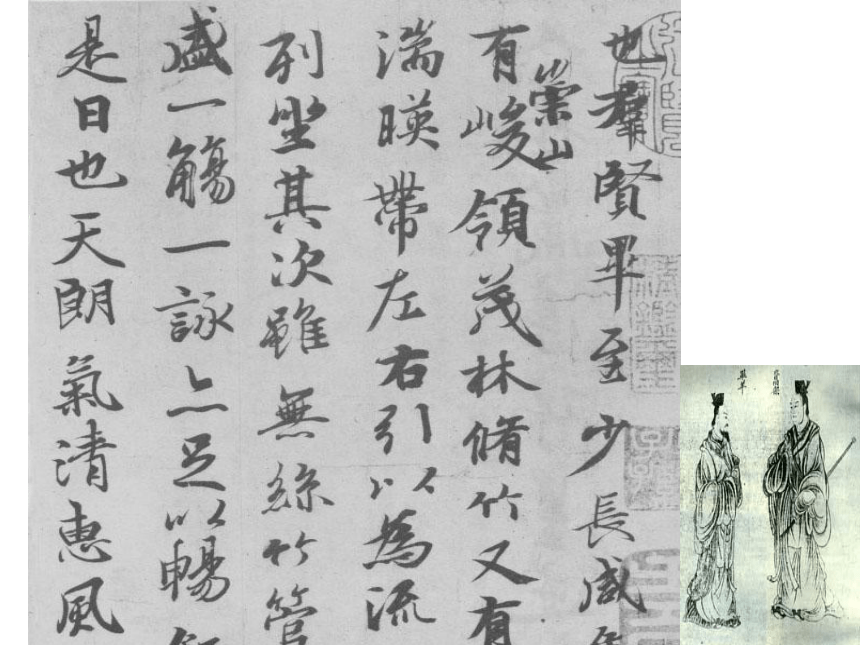 也羣賢畢至少長咸
有崇山峻領茂林脩竹又有
湍暎帶左右引以為流
列坐其次雖無絲竹管
盛一觴一詠亦足以暢
是日也天朗氣清惠風